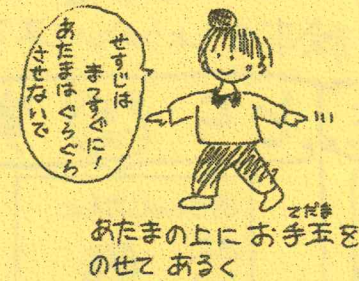 せすじは
まっすぐに!
あたまはぐらぐら
させないで
あたまの上に お手玉を
でだま
のせて あるく